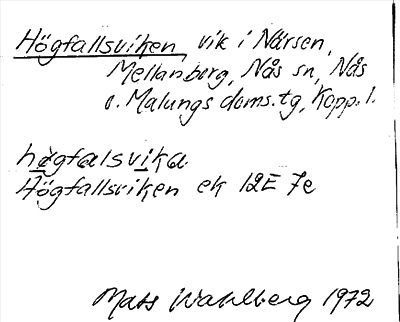 Högfallsviken, vik i Närsen,
Mellanborg, Nås sn, Nås
o. Malungs doms.tg, Kopp. l.
högfalsvika
Högfallsviken ek 12E 7e
Mats Wahlberg 1972